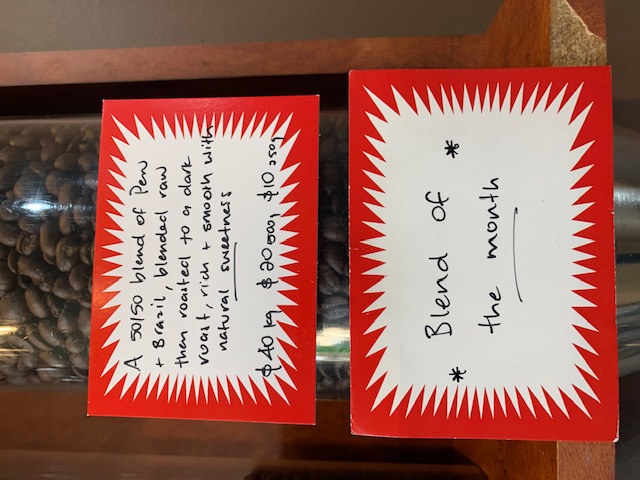 A 50/50 blend of Peru
+ Brazil, blended raw
then roasted to a dark
roast, rich + smooth with
natural sweetness
$40 kg $20 500g $10 250g
* Blend of *
the month